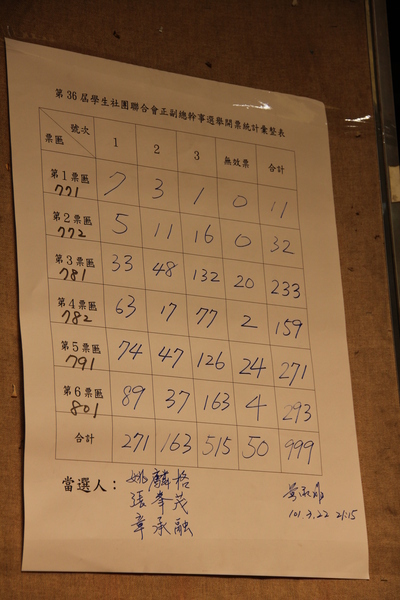 第36屆學生社團聯合會正副總幹事選舉開票統計彙整表
號次 票匭 1 2 3 無效票 合計
第1票匭 771 7 3 1 0 11
第2票匭 772 5 11 16 0 32
第3票匭 781 33 48 132 20 233
第4票匭 782 63 17 77 2 159
第5票匭 791 74 47 126 24 271
第6票匭 801 89 37 163 4 293
合計 271 163 515 50 999
當選人：姚麟格
張峯茂
章承融
101.3.22 21:15